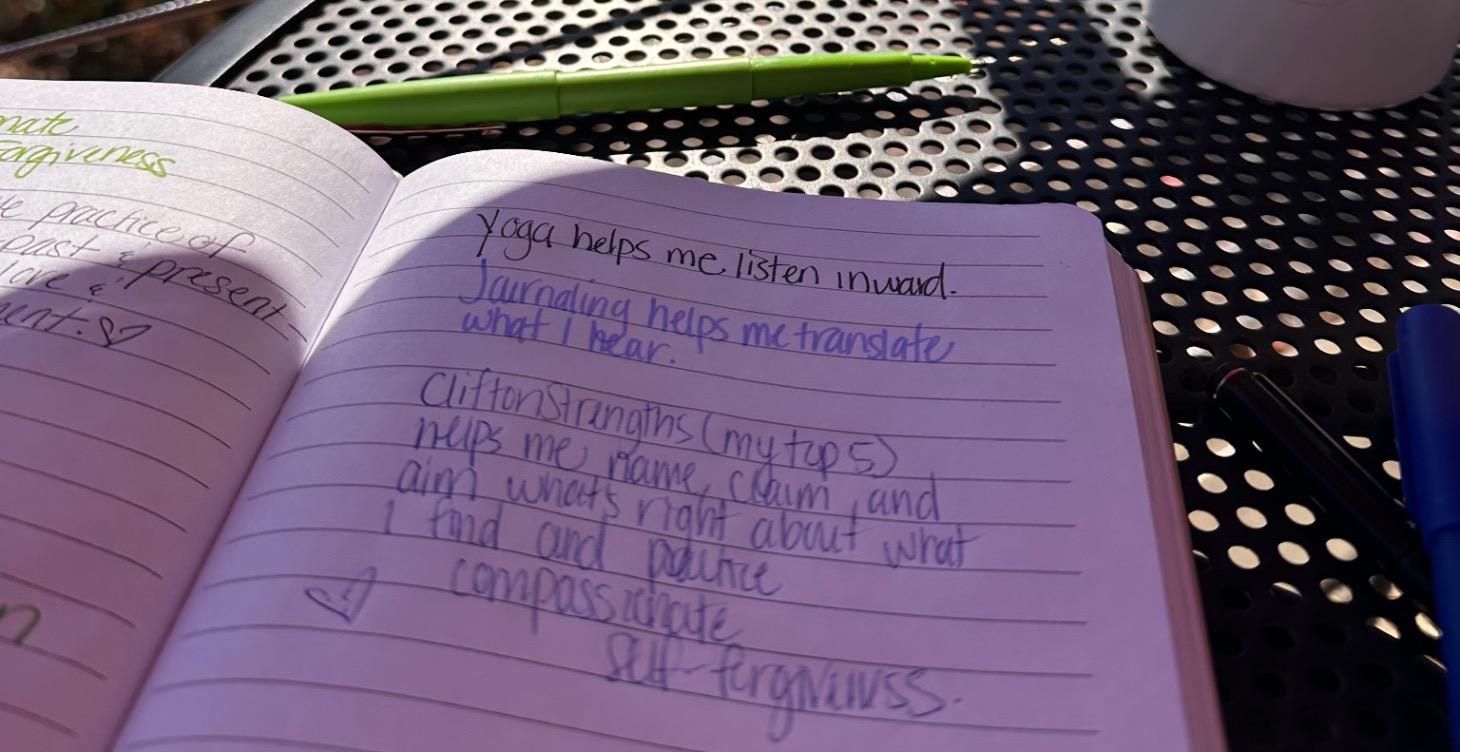 nate
Forgiveness
te practice of
past & present
love &
ent. ♡
n
Yoga helps me listen inward.
Journaling helps me translate
what I hear.
CliftonStrengths (my top 5)
helps me name, claim, and
aim what's right about what
I find and practice
compassionate
self-forgiveness.